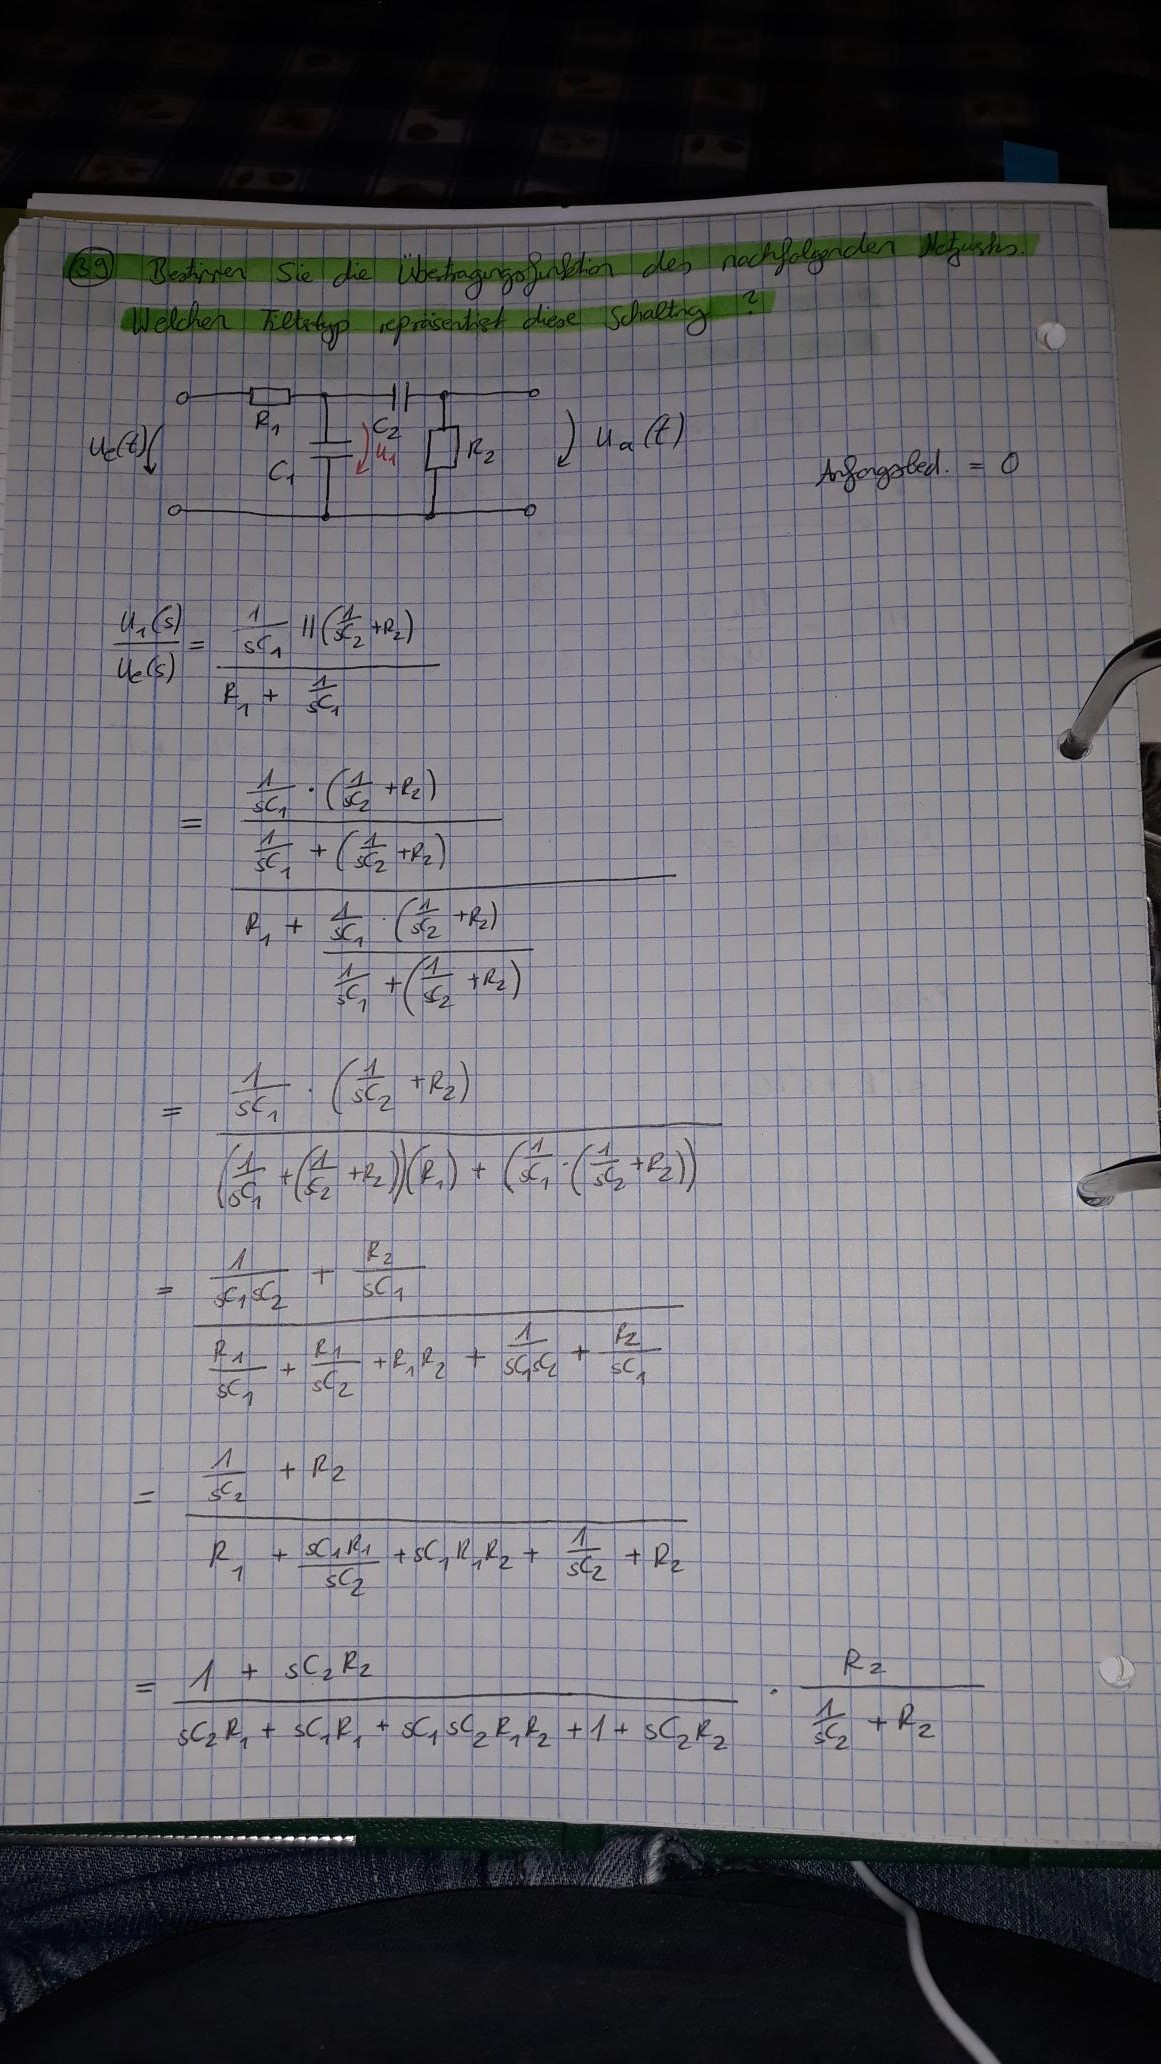 39 Bestimmen Sie die Übertragungsfunktion des nachfolgenden Netzwerks.
Welchen Filtertyp repräsentiert diese Schaltung ?
R₁ C₂
uₑ(t) C₁ u₁ R₂ uₐ(t)
Anfangsbed. = 0
u₁(s)/uₑ(s) = (1/sC₁ || (1/sC₂ + R₂)) / (R₁ + 1/sC₁)
= ((1/sC₁ · (1/sC₂ + R₂)) / (1/sC₁ + (1/sC₂ + R₂))) / (R₁ + (1/sC₁ · (1/sC₂ + R₂)) / (1/sC₁ + (1/sC₂ + R₂)))
= (1/sC₁ · (1/sC₂ + R₂)) / ((1/sC₁ + (1/sC₂ + R₂))(R₁) + (1/sC₁ · (1/sC₂ + R₂)))
= (1/sC₁sC₂ + R₂/sC₁) / (R₁/sC₁ + R₁/sC₂ + R₁R₂ + 1/sC₁sC₂ + R₂/sC₁)
= (1/sC₂ + R₂) / (R₁ + sC₁R₁/sC₂ + sC₁R₁R₂ + 1/sC₂ + R₂)
= (1 + sC₂R₂) / (sC₂R₁ + sC₁R₁ + sC₁sC₂R₁R₂ + 1 + sC₂R₂) · R₂ / (1/sC₂ + R₂)